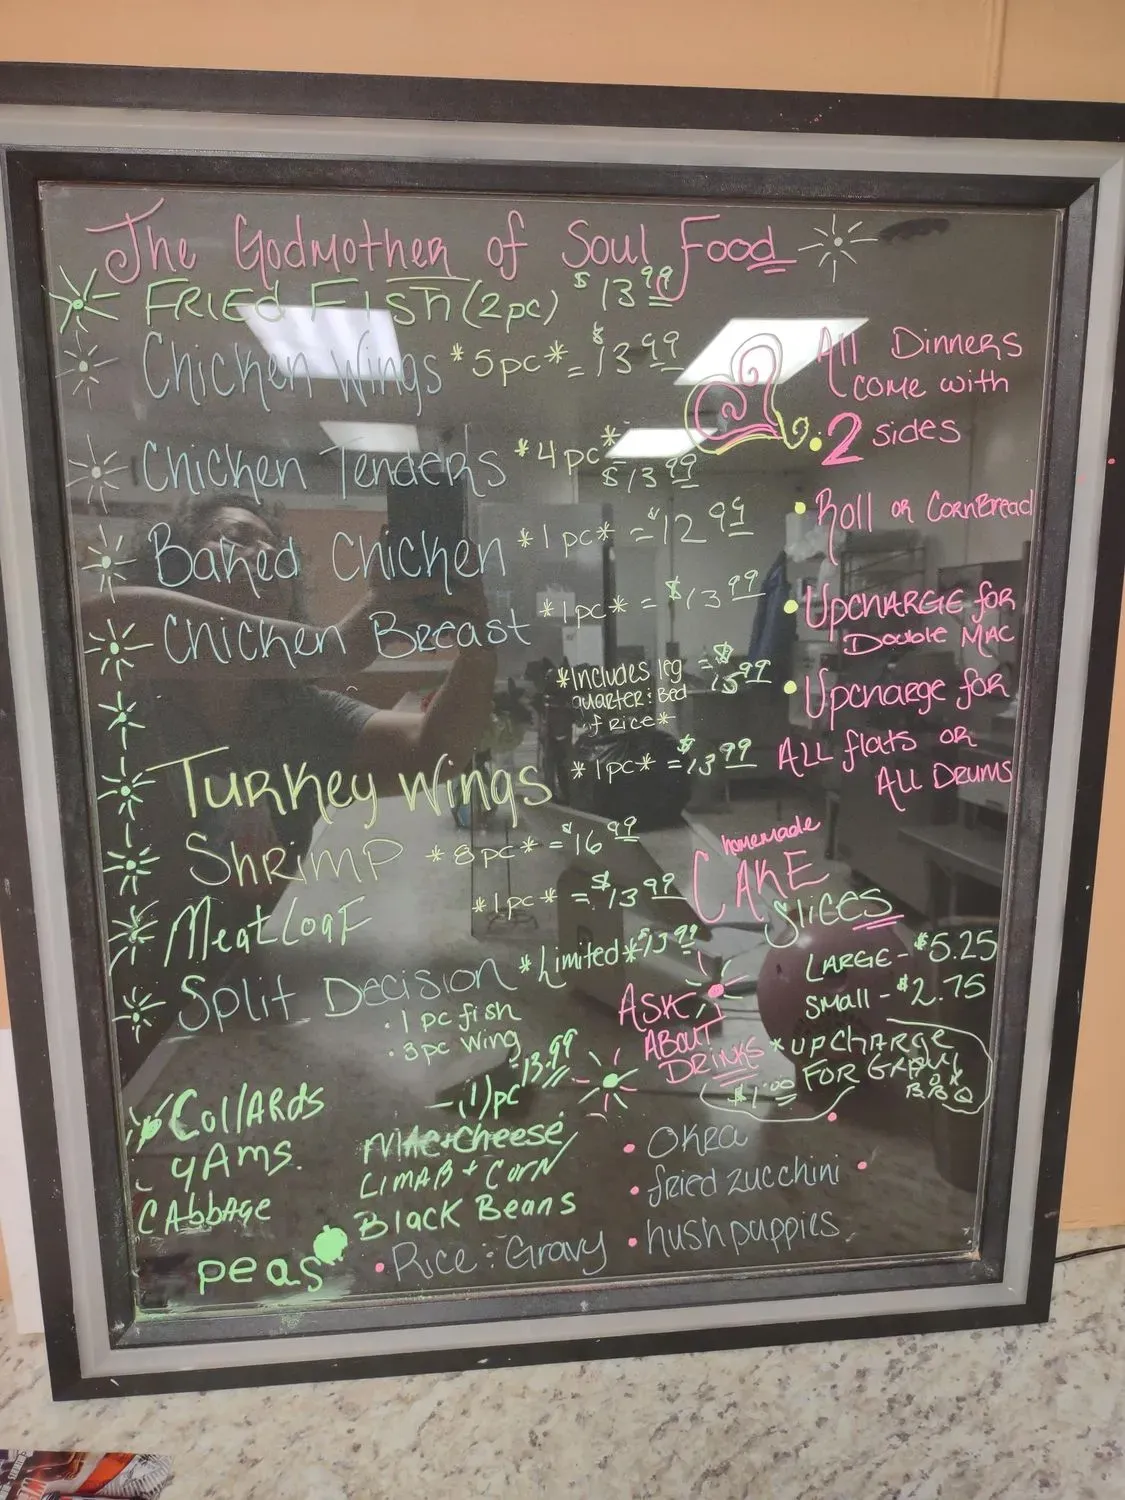 The Godmother of Soul Food
FRIED FISH (2pc) $13.99
Chicken Wings *5pc* = $13.99
Chicken Tenders *4pc* = $13.99
Baked Chicken *1pc* = $12.99
Chicken Breast *1pc* = $13.99
*Includes leg = $15.99
quarter : Bed
of rice*
Turkey Wings *1pc* = $13.99
Shrimp *8pc* = $16.99
Meatloaf *1pc* = $13.99
Split Decision *Limited* $13.99
• 1 pc fish
• 3pc wing
13.99
(1)pc
All Dinners
come with
• 2 sides
• Roll or CornBread
• Upcharge for
Double Mac
• Upcharge for
All flats or
All Drums
homemade
CAKE
Slices
LARGE - $5.25
small - $2.75
ASK
ABOUT
DRINKS
*UPCHARGE
FOR GRAVY
$1.00
OR
BBQ
Collards
YAms.
CAbbAge
peas
MAC + Cheese
LimAB + CorN
Black Beans
• Rice : Gravy
• Okra
• fried zucchini
• hushpuppies